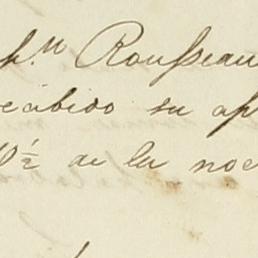 p.r Rousseau
ecibido su ap
0½ de la noc